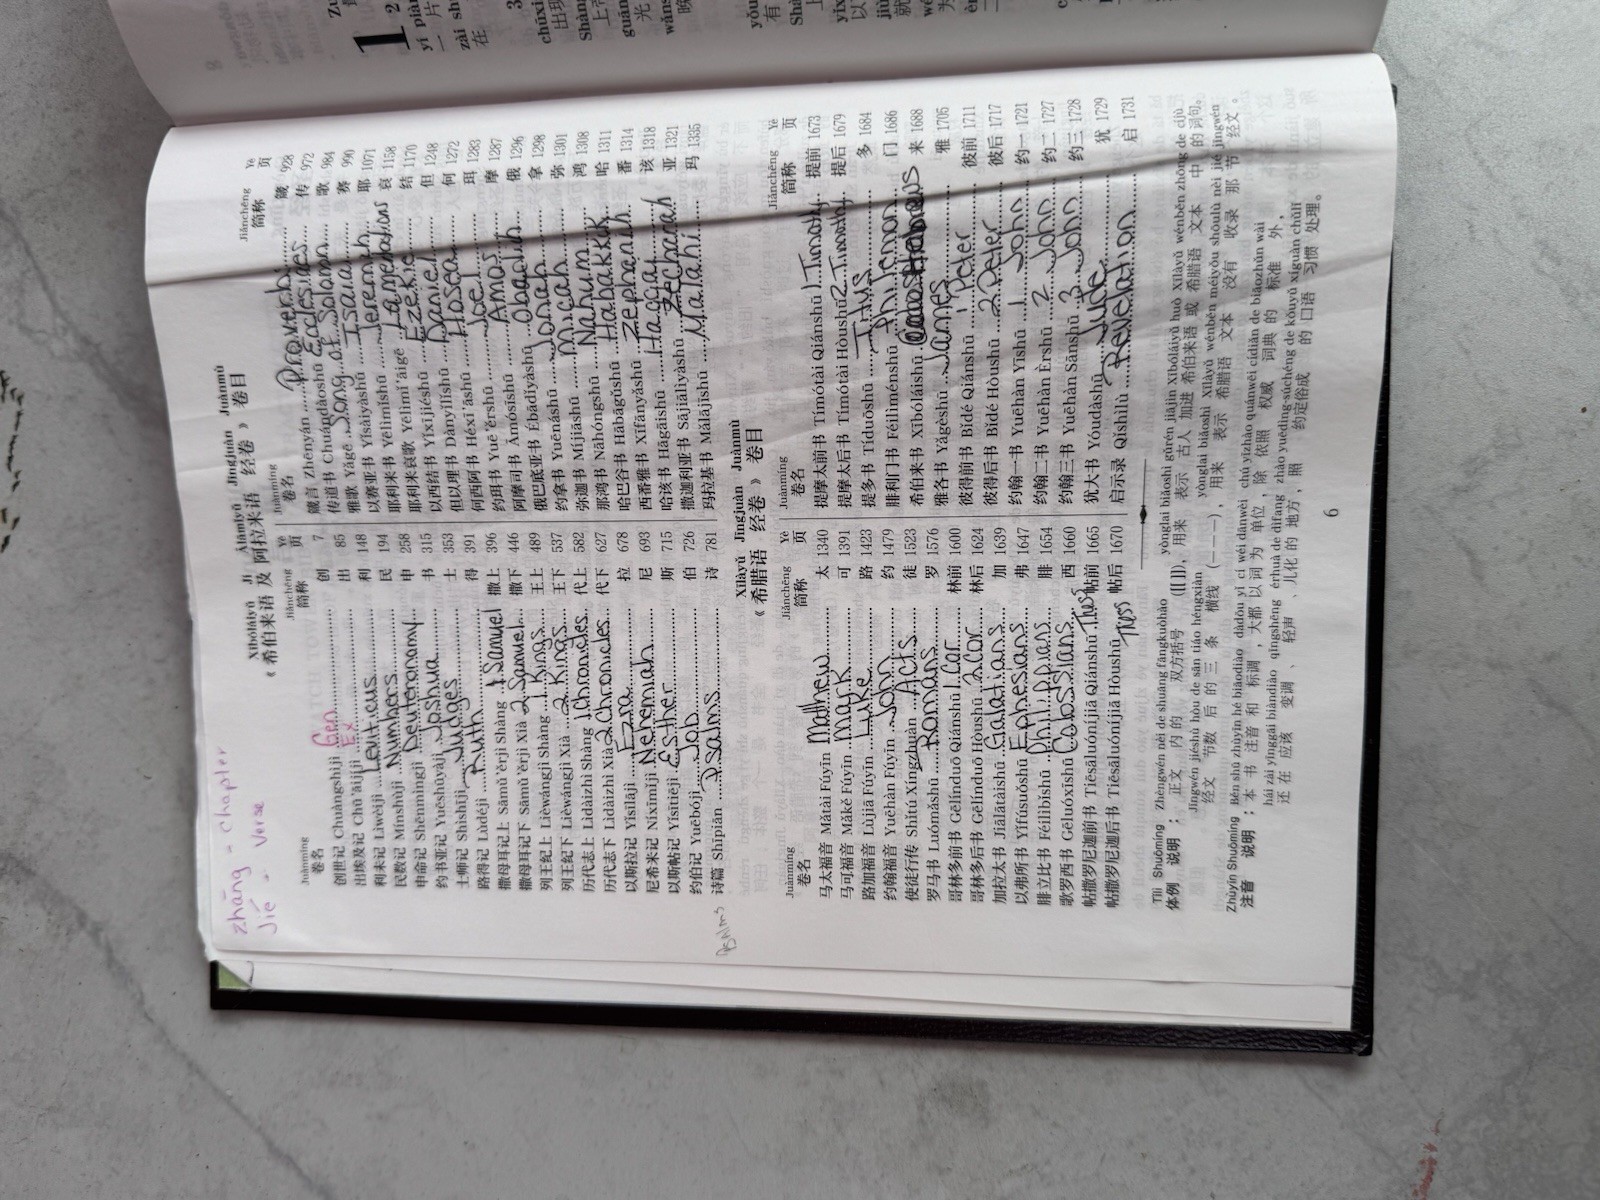 zhāng - chapter
jié - verse
Xībóláiyǔ Jí Ālāmǐyǔ Jīngjuàn Juànmù
《希伯来语 及 阿拉米来语 经卷》 卷目
Juànmíng Jiǎnchēng Yè
卷名 简称 页
创世记 Chuàngshìjì Gen 创 7
出埃及记 Chū'āijíjì Ex 出 85
利未记 Lìwèijì Leviticus 利 148
民数记 Mínshùjì Numbers 民 194
申命记 Shēnmìngjì Deuteronomy 申 258
约书亚记 Yuēshūyàjì Joshua 书 315
士师记 Shìshījì Judges 士 353
路得记 Lùdéjì Ruth 得 391
撒母耳记上 Sāmǔ'ěrjì Shàng 1 Samuel 撒上 396
撒母耳记下 Sāmǔ'ěrjì Xià 2 Samuel 撒下 446
列王纪上 Lièwángjì Shàng 1 Kings 王上 489
列王纪下 Lièwángjì Xià 2 Kings 王下 537
历代志上 Lìdàizhì Shàng 1 Chronicles 代上 582
历代志下 Lìdàizhì Xià 2 Chronicles 代下 627
以斯拉记 Yǐsīlājì Ezra 拉 678
尼希米记 Níxīmǐjì Nehemiah 尼 693
以斯帖记 Yǐsītiējì Esther 斯 715
约伯记 Yuēbójì Job 伯 726
诗篇 Shīpiān Psalms 诗 781
Psalms
Juànmíng Jiǎnchēng Yè
卷名 简称 页
箴言 Zhēnyán Proverbs 箴 928
传道书 Chuándàoshū Ecclesiaes 传 972
雅歌 Yǎgē Song of Solomon 歌 984
以赛亚书 Yǐsàiyàshū Isaiah 赛 990
耶利米书 Yēlìmǐshū Jeremiah 耶 1071
耶利米哀歌 Yēlìmǐ'āigē Lamentations 哀 1158
以西结书 Yǐxījiéshū Ezekiel 结 1170
但以理书 Dànyǐlǐshū Daniel 但 1248
何西阿书 Héxī'āshū Hosea 何 1272
约珥书 Yuē'ěrshū Joel 珥 1283
阿摩司书 Āmósīshū Amos 摩 1287
俄巴底亚书 Ébādǐyàshū Obadiah 俄 1296
约拿书 Yuēnáshū Jonah 拿 1298
弥迦书 Míjiāshū Micah 弥 1301
那鸿书 Nàhóngshū Nahum 鸿 1308
哈巴谷书 Hābāgǔshū Habakkk 哈 1311
西番雅书 Xīfānyǎshū Zephaniah 番 1314
哈该书 Hāgāishū Haggai 该 1318
撒迦利亚书 Sājiālìyàshū Zechariah 亚 1321
玛拉基书 Mǎlājīshū Malahi 玛 1335
Xīlàyǔ Jīngjuàn Juànmù
《希腊语 经卷》 卷目
Juànmíng Jiǎnchēng Yè
卷名 简称 页
马太福音 Mǎtài Fúyīn Mathew 太 1340
马可福音 Mǎkě Fúyīn Mark 可 1391
路加福音 Lùjiā Fúyīn Luke 路 1423
约翰福音 Yuēhàn Fúyīn John 约 1479
使徒行传 Shǐtú Xíngzhuàn Acts 徒 1523
罗马书 Luómǎshū Romans 罗 1576
哥林多前书 Gēlínduō Qiánshū 1 Cor 林前 1600
哥林多后书 Gēlínduō Hòushū 2 Cor 林后 1624
加拉太书 Jiālātàishū Galatians 加 1639
以弗所书 Yǐfúsuǒshū Ephesians 弗 1647
腓立比书 Féilìbǐshū Philippians 腓 1654
歌罗西书 Gēluóxīshū Colossians 西 1660
帖撒罗尼迦前书 Tiēsāluóníjiā Qiánshū Thes 帖前 1665
帖撒罗尼迦后书 Tiēsāluóníjiā Hòushū Thess 帖后 1670
Juànmíng Jiǎnchēng Yè
卷名 简称 页
提摩太前书 Tímótài Qiánshū 1 Timothy 提前 1673
提摩太后书 Tímótài Hòushū 2 Timothy 提后 1679
提多书 Tíduōshū Titus 多 1684
腓利门书 Féilìménshū Philemon 门 1686
希伯来书 Xībóláishū Hebrews 来 1688
雅各书 Yǎgèshū James 雅 1705
彼得前书 Bǐdé Qiánshū 1 Peter 彼前 1711
彼得后书 Bǐdé Hòushū 2 Peter 彼后 1717
约翰一书 Yuēhàn Yīshū 1 John 约一 1721
约翰二书 Yuēhàn Èrshū 2 John 约二 1727
约翰三书 Yuēhàn Sānshū 3 John 约三 1728
犹大书 Yóudàshū Jude 犹 1729
启示录 Qǐshìlù Revelation 启 1731
Tǐlì Shuōmíng Zhèngwén nèi de shuāng fāngkuòhào yònglái biǎoshì gǔrén jiājìn Xībóláiyǔ huò Xīlàyǔ wénběn zhōng de cíjù
体例 说明 ： 正文 内 的 双方括号 （[[ ]]），用来 表示 古人 加进 希伯来语 或 希腊语 文本 中 的 词句。
Jīngwén jiéshù hòu de sān tiáo héngxiàn yònglái biǎoshì Xīlàyǔ wénběn méiyǒu shōulù nèi jié jīngwén
经文 节数 后 的 三 条 横线 （———），用来 表示 希腊语 文本 没有 收录 那 节 经文。
Zhùyīn Shuōmíng Běn shū zhùyīn hé biāodiào dàdōu yǐ cí wéi dānwèi chú yīzhào quánwēi cídiǎn de biāozhǔn wài
注音 说明 ： 本 书 注音 和 标调，大都 以 词 为 单位，除 依照 权威 词典 的 标准 外，
hái zài yīnggāi biàndiào qīngshēng érhuà de dìfang zhào yuēdìng-súchéng de kǒuyǔ xíguàn chǔlǐ
还 在 应该 变调 、 轻声 、儿化 的 地方，照 约定俗成 的 口语 习惯 处理。
6